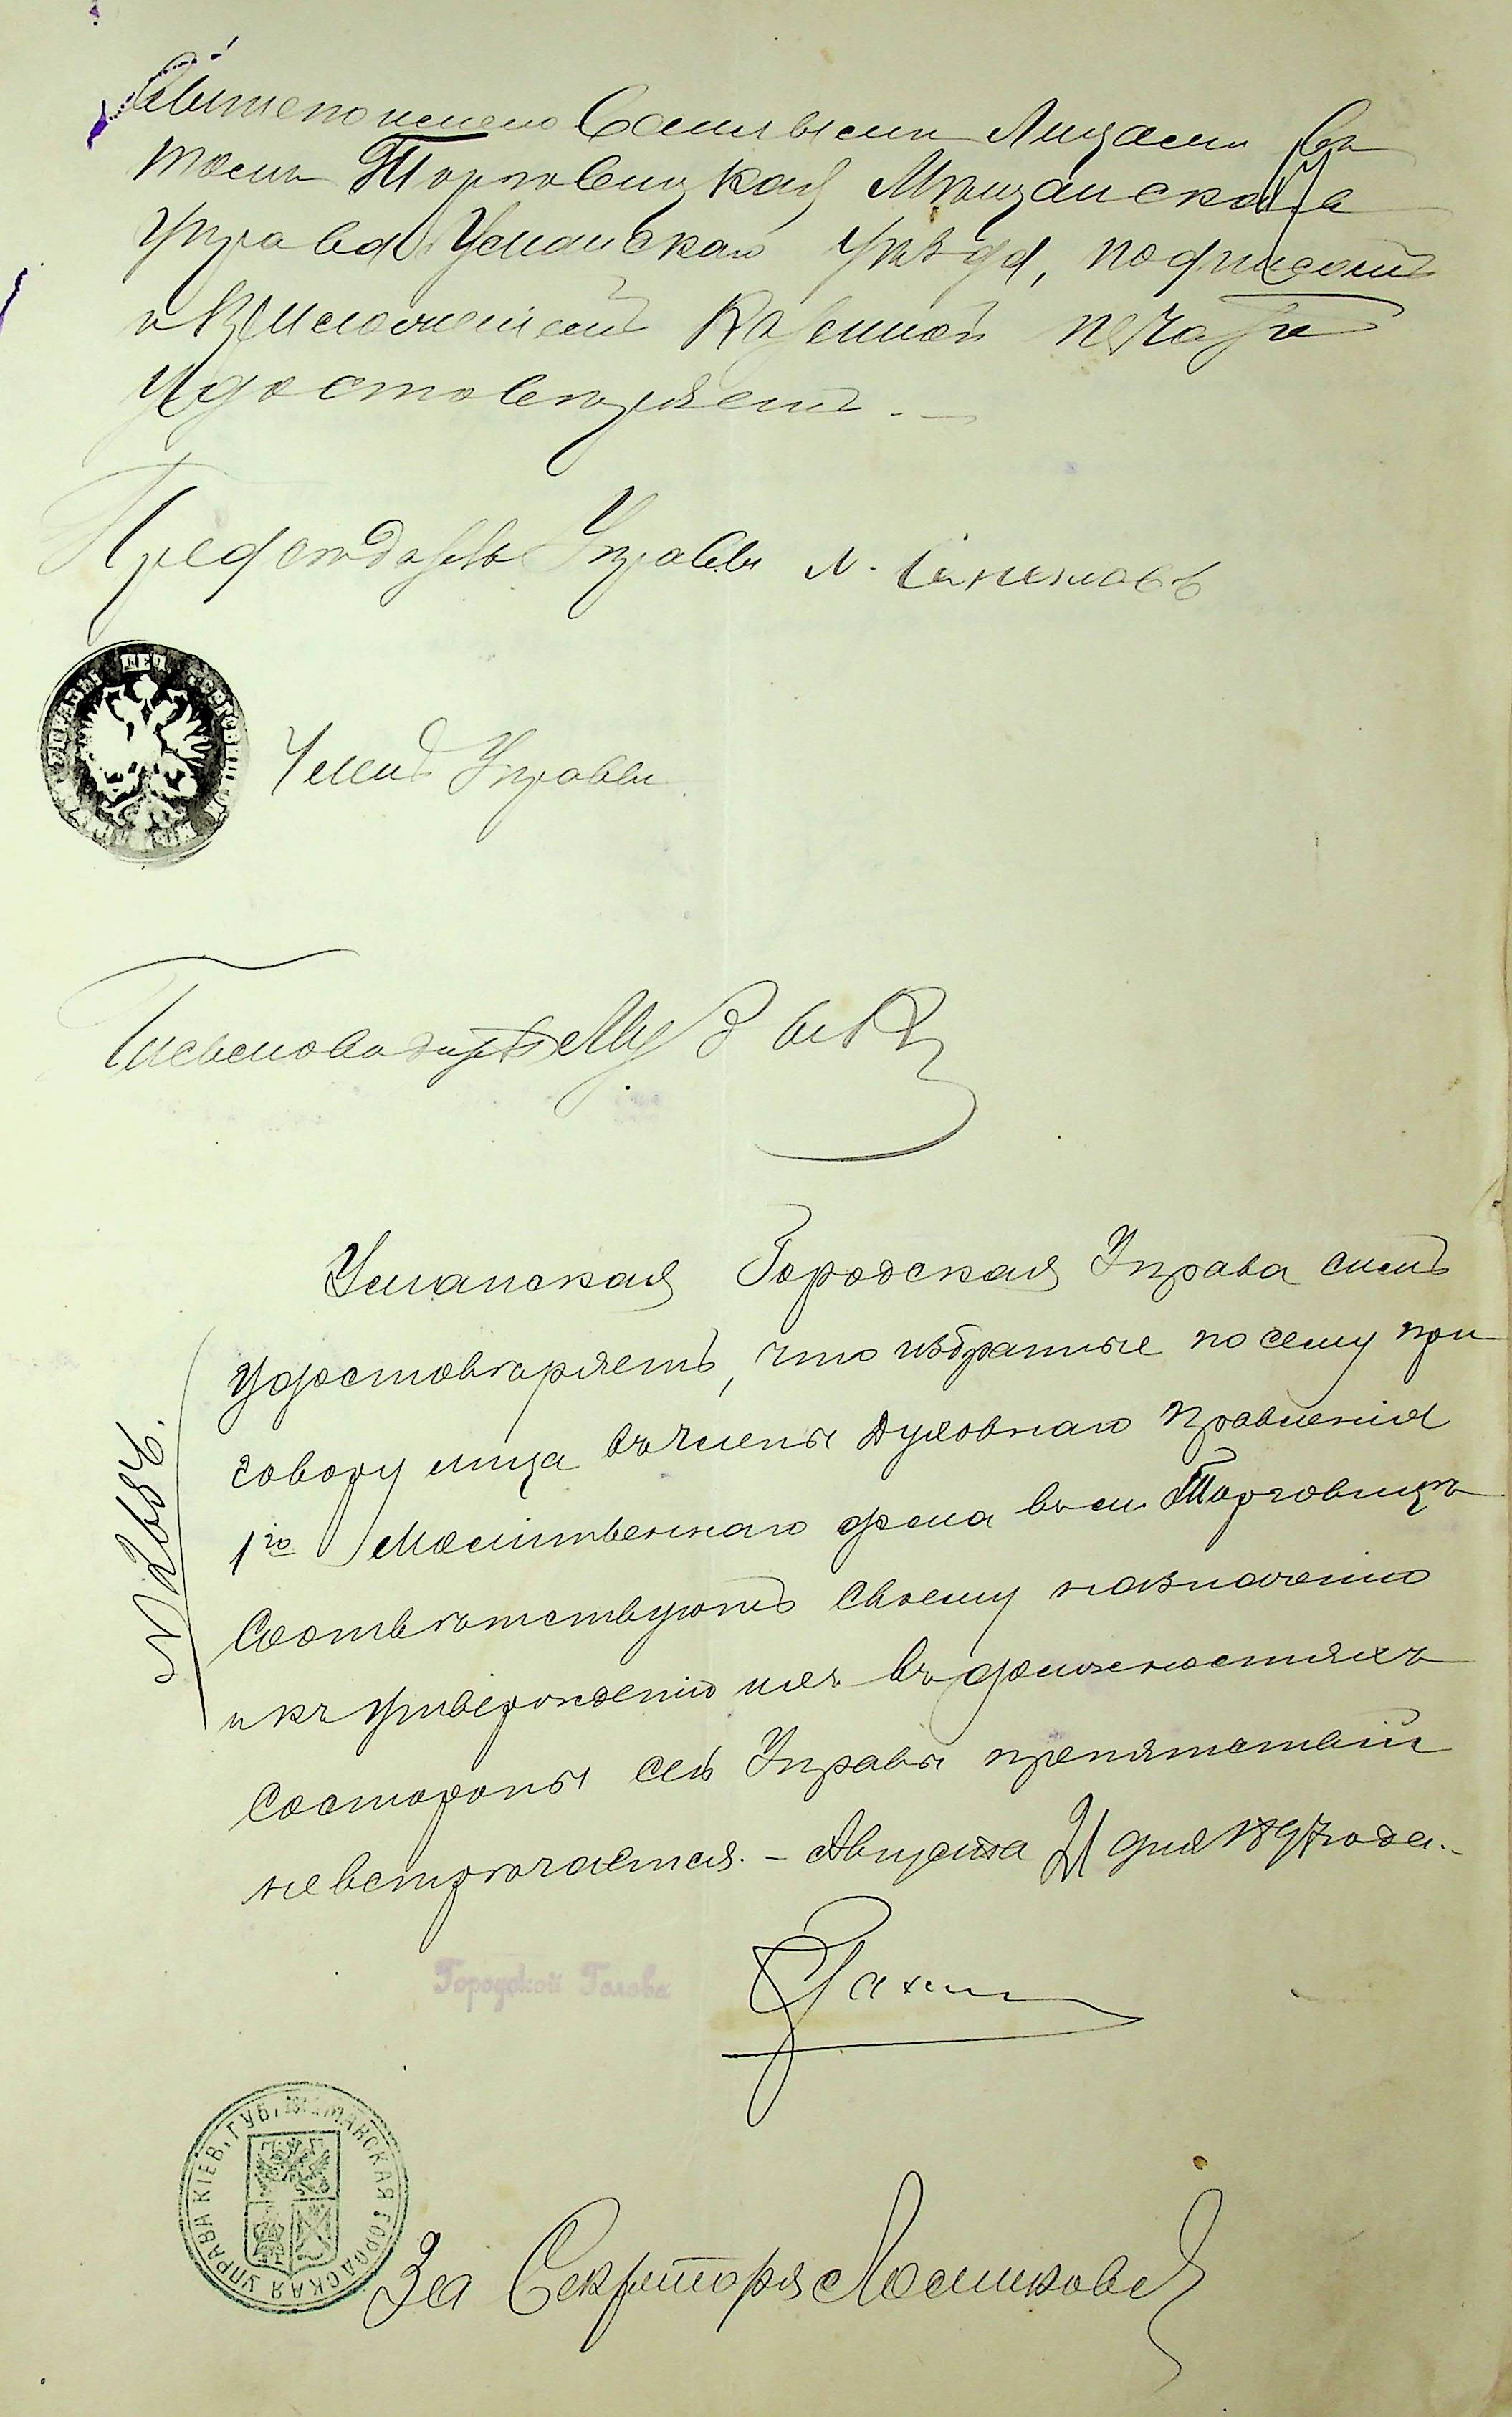 Самыми Лицами въ
томъ Торговицкая Мѣщанская
Управа Уманскаго уѣзда, подписомъ
и приложеніемъ Казенной печати
удостовѣряетъ.
Предсѣдатель Управы
Членъ Управы
Письмоводитель Музыка
Уманская Городская Управа симъ
удостовѣряетъ, что избранные по сему при
говору лица въ члены Духовнаго Правленія
1го Молитвеннаго дома въ м. Торговицѣ
Соотвѣтствуютъ своему назначенію
и къ утвержденію ихъ въ должностяхъ
состороны сей Управы препятствій
не встрѣчается. – Августа 21 дня 1897 года.
Городской Голова
УМАНСКАЯ ГОРОДСКАЯ УПРАВА КІЕВ. ГУБ.
За Секретаря